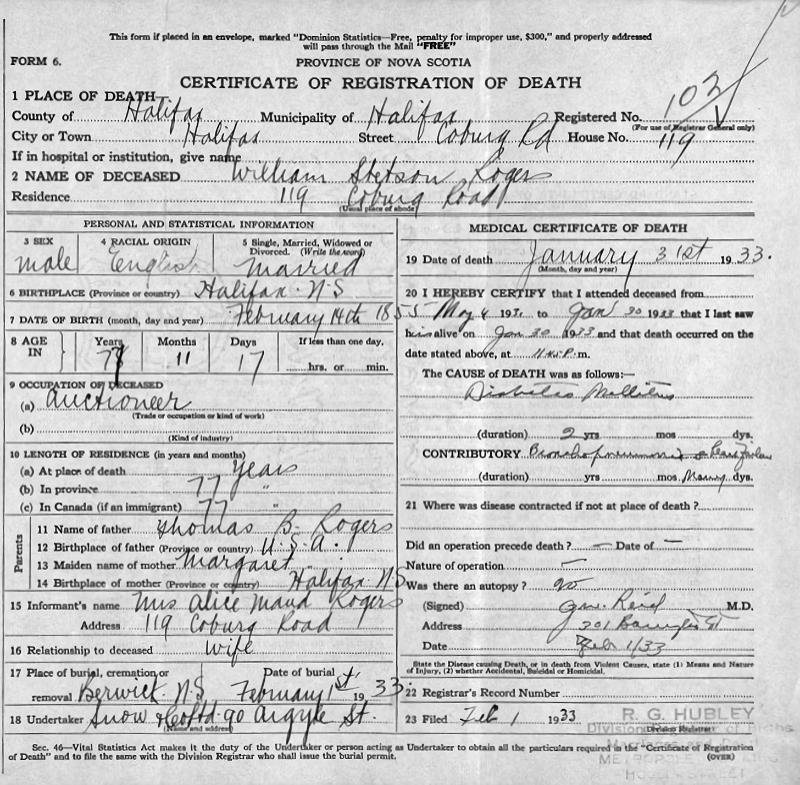 This form if placed in an envelope, marked "Dominion Statistics—Free, penalty for improper use, $300," and properly addressed
will pass through the Mail "FREE"
FORM 6.
PROVINCE OF NOVA SCOTIA
CERTIFICATE OF REGISTRATION OF DEATH
1 PLACE OF DEATH
County of Halifax Municipality of Halifax Registered No. 103
(For use of Registrar General only)
City or Town Halifax Street Coburg Rd House No. 119
If in hospital or institution, give name
2 NAME OF DECEASED William Stetson Rogers
Residence 119 Coburg Road
(Usual place of abode)
PERSONAL AND STATISTICAL INFORMATION
3 SEX male
4 RACIAL ORIGIN English
5 Single, Married, Widowed or Divorced. (Write the word) Married
6 BIRTHPLACE (Province or country) Halifax N.S
7 DATE OF BIRTH (month, day and year) February 14th 1855
8 AGE IN Years 77 Months 11 Days 17 If less than one day. hrs. or min.
9 OCCUPATION OF DECEASED
(a) Auctioneer
(Trade or occupation or kind of work)
(b)
(Kind of industry)
10 LENGTH OF RESIDENCE (in years and months)
(a) At place of death years
(b) In province 77 "
(c) In Canada (if an immigrant) 77 "
Parents
11 Name of father Thomas B. Rogers
12 Birthplace of father (Province or country) U.S.A.
13 Maiden name of mother Margaret
14 Birthplace of mother (Province or country) Halifax N.S
15 Informant's name Mrs Alice Maud Rogers
Address 119 Coburg Road
16 Relationship to deceased wife
17 Place of burial, cremation or removal Berwick N.S Date of burial February 1st 1933.
18 Undertaker Snow & Co Ltd 90 Argyle St.
(Name and address)
MEDICAL CERTIFICATE OF DEATH
19 Date of death January 31st 1933.
(Month, day and year)
20 I HEREBY CERTIFY that I attended deceased from
May 4 193 to Jan 30 1933 that I last saw
h is alive on Jan 30 1933 and that death occurred on
date stated above, at 11 P. m.
The CAUSE of DEATH was as follows:—
Diabetes Mellitus
(duration) 2 yrs mos dys.
CONTRIBUTORY Bronchopneumonia
(duration) yrs mos. Many dys.
21 Where was disease contracted if not at place of death?
Did an operation precede death? — Date of —
Nature of operation –
Was there an autopsy? no
(Signed) Reid M.D.
Address 301 Barrington St
Date Feb 1/33
State the Disease causing Death, or in death from Violent Causes, state (1) Means and Nature
of Injury, (2) whether Accidental, Suicidal or Homicidal.
22 Registrar's Record Number
23 Filed Feb 1 1933 R. G. HUBLEY
Division Registrar
Sec. 46—Vital Statistics Act makes it the duty of the Undertaker or person acting as Undertaker to obtain all the particulars required in the "Certificate of Registration
of Death" and to file the same with the Division Registrar who shall issue the burial permit.
(OVER)